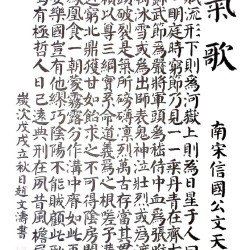 氣歌
南宋信國公文天
賦流形下則為河嶽上則為日星于人
明庭時窮節乃見一一垂丹青在齊
武節為嚴將軍頭為嵇侍中血為張睢
冰雪或為出師表鬼神泣壯烈或為
頭破裂是氣所磅礴凜烈萬古存當其貫
賴以尊三綱實係命道義為之根嗟予
送窮北鼎鑊甘如飴求之不可得陰房闃
鳳凰食一朝蒙霧露分作溝中瘠如此
安樂國豈有他繆巧陰陽不能賊顧此耿
曷有極哲人日已遠典刑在夙昔風檐展
歲次戊戌立秋日趙文濤書